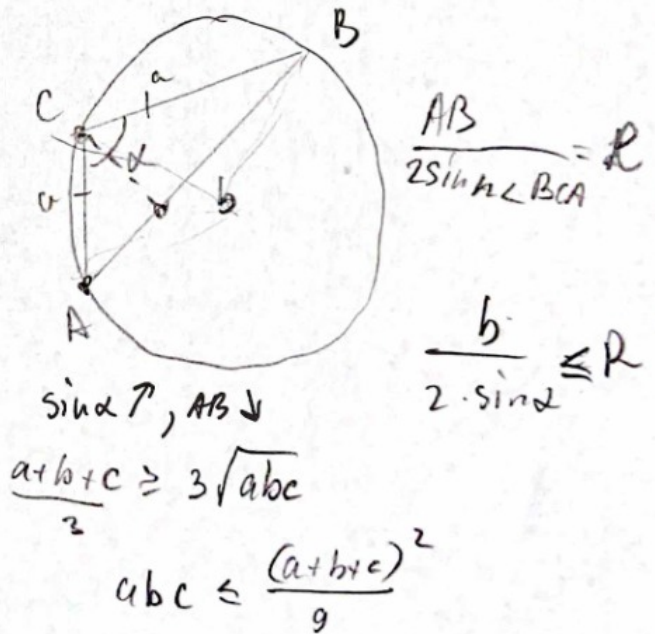 B
C
a
α
a
b
A
AB / 2sin ∠BCA = R
b / 2·sinα ≤ R
sinα ↑, AB ↓
(a+b+c)/3 ≥ 3√abc
abc ≤ (a+b+c)² / 9